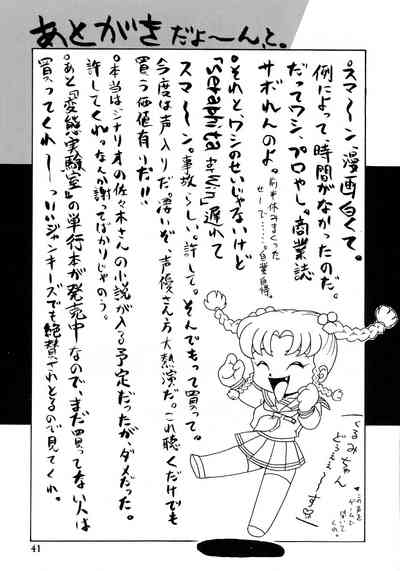 あとがきだよ〜ん、と。
・スマ〜ン漫画白くて。
例によって、時間がなかったのだ。
だってワシ、プロやし。商業誌
サボれんのよ。
前半休みまくった
せーで……。自業自得。
・それと、ワシのせいじゃないけど
「seraphita for win」遅れて
スマ〜ン。事故らしい。許して。そんでもって買って。
今度は声入りだ。凄いぞ、声優さん方大熱演だ。これ聴くだけでも
買う価値有りだ!!
・本当は、シナリオの佐々木さんの小説が入る予定だったが、ダメだった。
許してくれっ。なんか謝ってばかりじゃのう。
・あと『変態実験室』の単行本が発売中なので、まだ買ってない人は
買ってくれ〜っ!!ジャンキーズでも絶賛されとるので見てくれ。
くるみちゃん
どぇぇぇ〜す
この声を
ゲームで
聴いて
くれ。
41